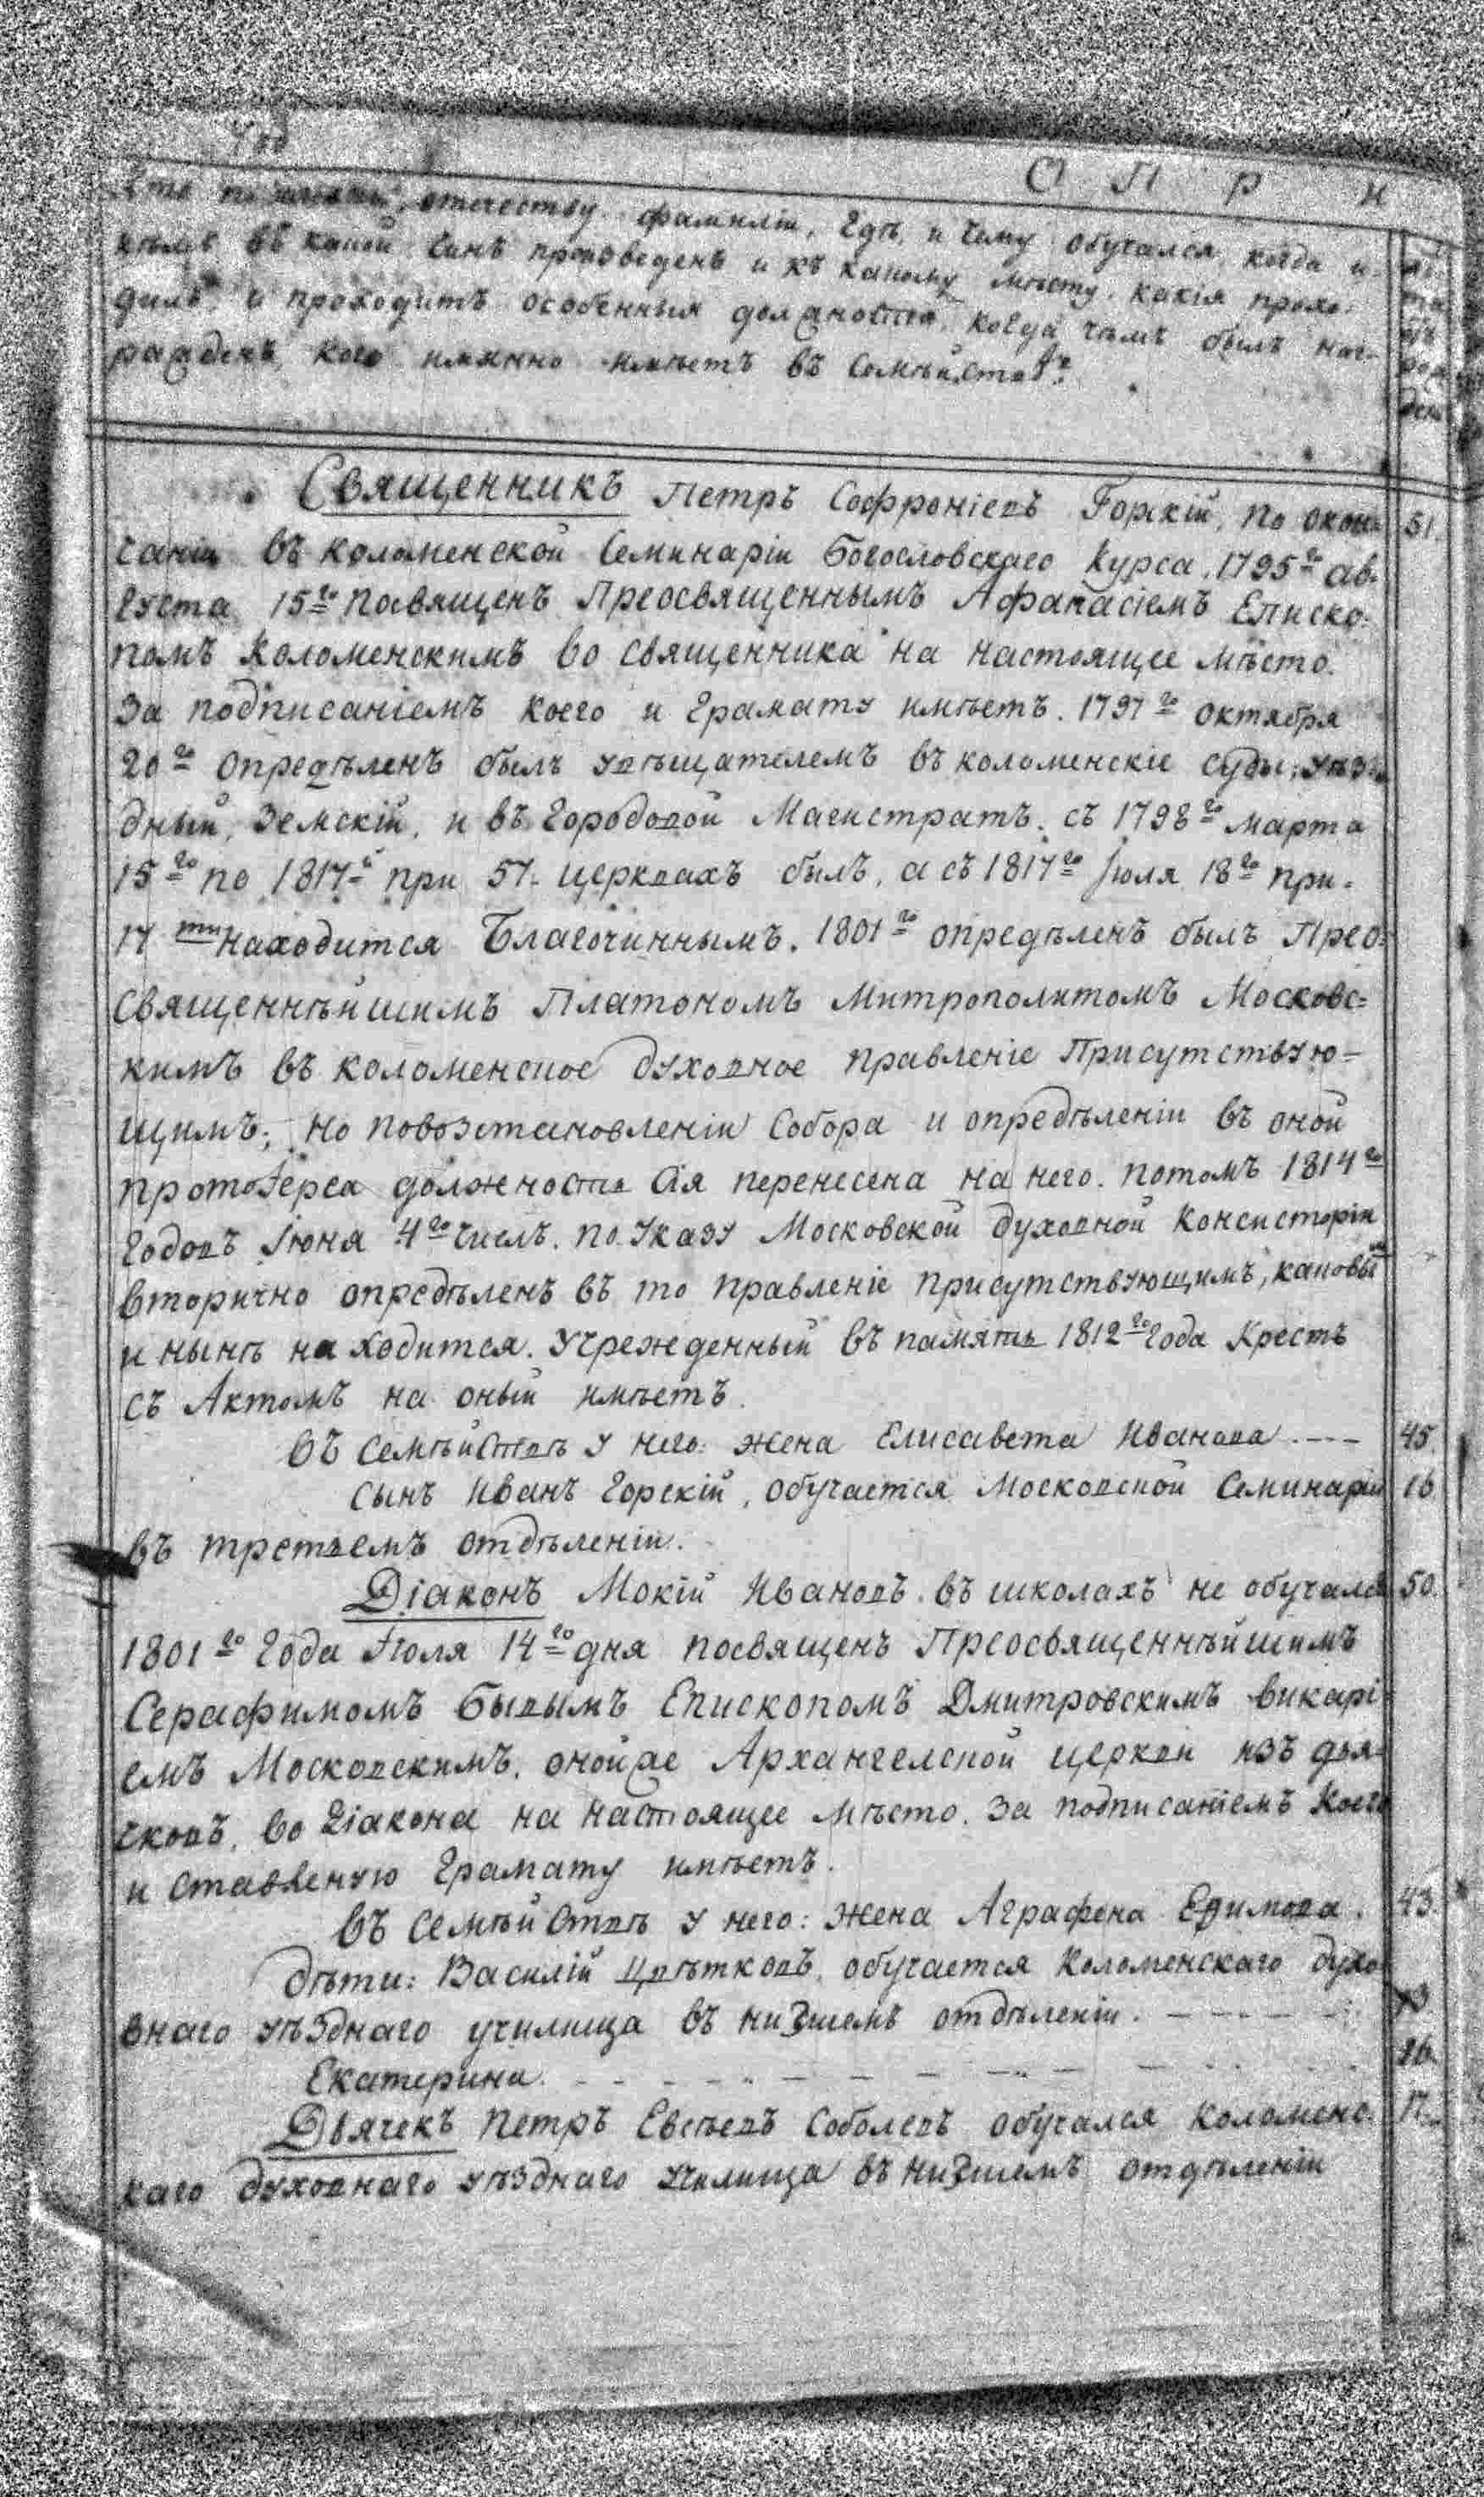 О П Р И
отечеству фамиліи, гдѣ, и чему обучался, когда и
кѣмъ въ какой чинъ произведенъ и къ какому мѣсту, какія прохо-
дилъ и проходитъ особенныя должности, когда чѣмъ былъ наг-
ражденъ, кого имянно имѣетъ въ семѣйствѣ.
Священникъ Петръ Софроніевъ Горскій, по окон- 51.
чаніи въ коломенской Семинаріи Богословскаго Курса, 1795го ав-
густа 15го посвященъ Преосвященнымъ Афанасіемъ Еписко-
помъ Коломенскимъ во священника на настоящее мѣсто.
За подписаніемъ коего и грамату имѣетъ. 1797го октября
20го опредѣленъ былъ увѣщателемъ въ коломенскіе суды, уѣз-
дный, Земскій, и въ городовой Магистратъ. съ 1798го марта
15го по 1817й при 57. церквахъ былъ, а съ 1817го Іюля 18го при-
17ти находится Благочиннымъ. 1801го опредѣленъ былъ Прео-
священнѣйшимъ Платономъ Митрополитомъ Московс-
кимъ въ коломенское духовное правленіе Присутствую-
щимъ; но повозстановленіи Собора и опредѣленіи въ оной
протоіерея должность сія перенесена на него. потомъ 1814го
годовъ Іюня 4го числъ. по Указу Московской духовной Консисторіи
вторично опредѣленъ въ то правленіе присутствующимъ, каковым
и нынѣ находится. Учрежденный въ память 1812го года Крестъ
съ Актомъ на оный имѣетъ.
въ семѣйствѣ у него: жена Елисавета Иванова ---- 45.
сынъ Иванъ Горскій, обучается Московской Семинаріи 16
въ третьемъ отдѣленіи.
Діаконъ Мокій Ивановъ. въ школахъ не обучался 50.
1801го года Іюля 14го дня посвященъ Преосвященнѣйшимъ
Серафимомъ бывымъ Епископомъ Дмитровскимъ викарі-
емъ Московскимъ, онойже Архангелской церкви изъ дья-
чковъ, во діакона на настоящее мѣсто. За подписаніемъ коего
и ставленую грамату имѣетъ.
въ семѣйствѣ у него: жена Аграфена Ефимова. 43.
дѣти: Василій Цвѣтковъ, обучается Коломенскаго духо-
внаго уѣзднаго училища въ низшемъ отдѣленіи. - - - - -
Екатерина. - - - - - - - - - 16.
Дьячекъ Петръ Евсѣевъ Соболевъ обучался Коломенс- 17.
каго духовнаго уѣзднаго училища въ низшемъ отдѣленіи